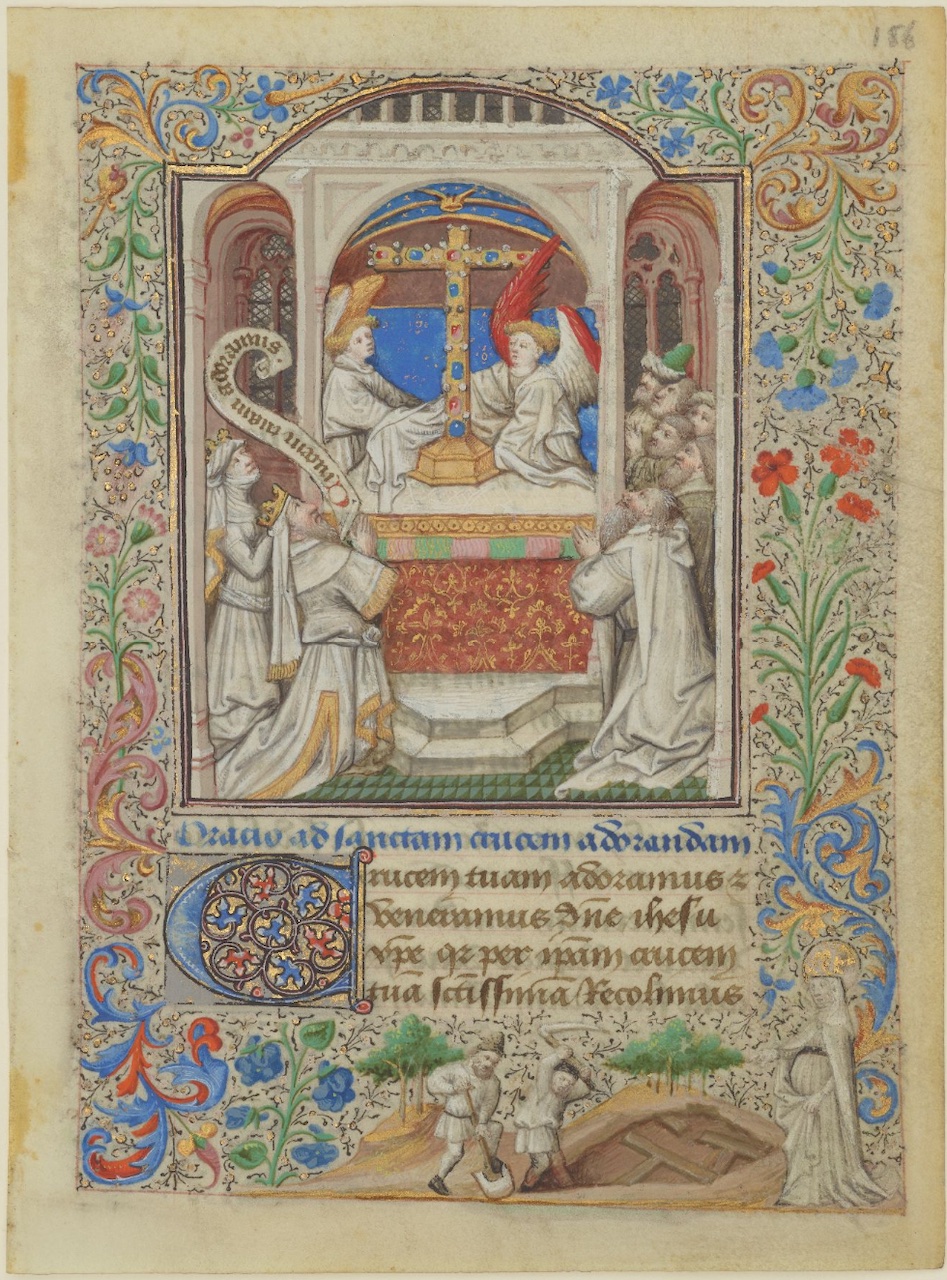 156
Crucem tuam adoramus
Oracio ad sanctam crucem adorandam
Crucem tuam adoramus ⁊
veneramur dn̄e ihesu
xp̄e qꝛ per ip̄am crucem
tuā sctīssimā Recolimus